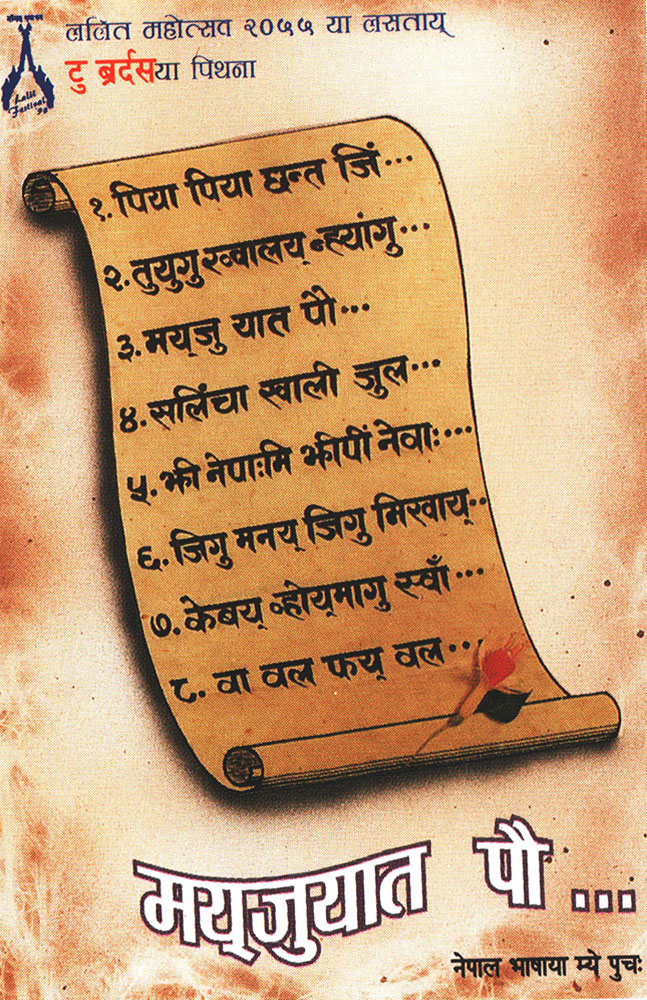 ललित महोत्सव २०५५ या लसताय्
टु ब्रर्दसया पिथना
Lalit
Festival
98
१. पिया पिया छन्त जिं...
२. तुयुगु ख्वालय् न्ह्यांगु...
३. मय्‌जु यात पौ...
४. सलिंचा स्वाली जुल...
५. झी नेपाःमि झीपीं नेवाः...
६. जिगु मनय् जिगु मिखाय्..
७. केबय् व्होय्‌मागु स्वाँ...
८. वा वल फय् वल...
मय्‌जुयात पौ ...
नेपाल भाषाया म्ये पुचः